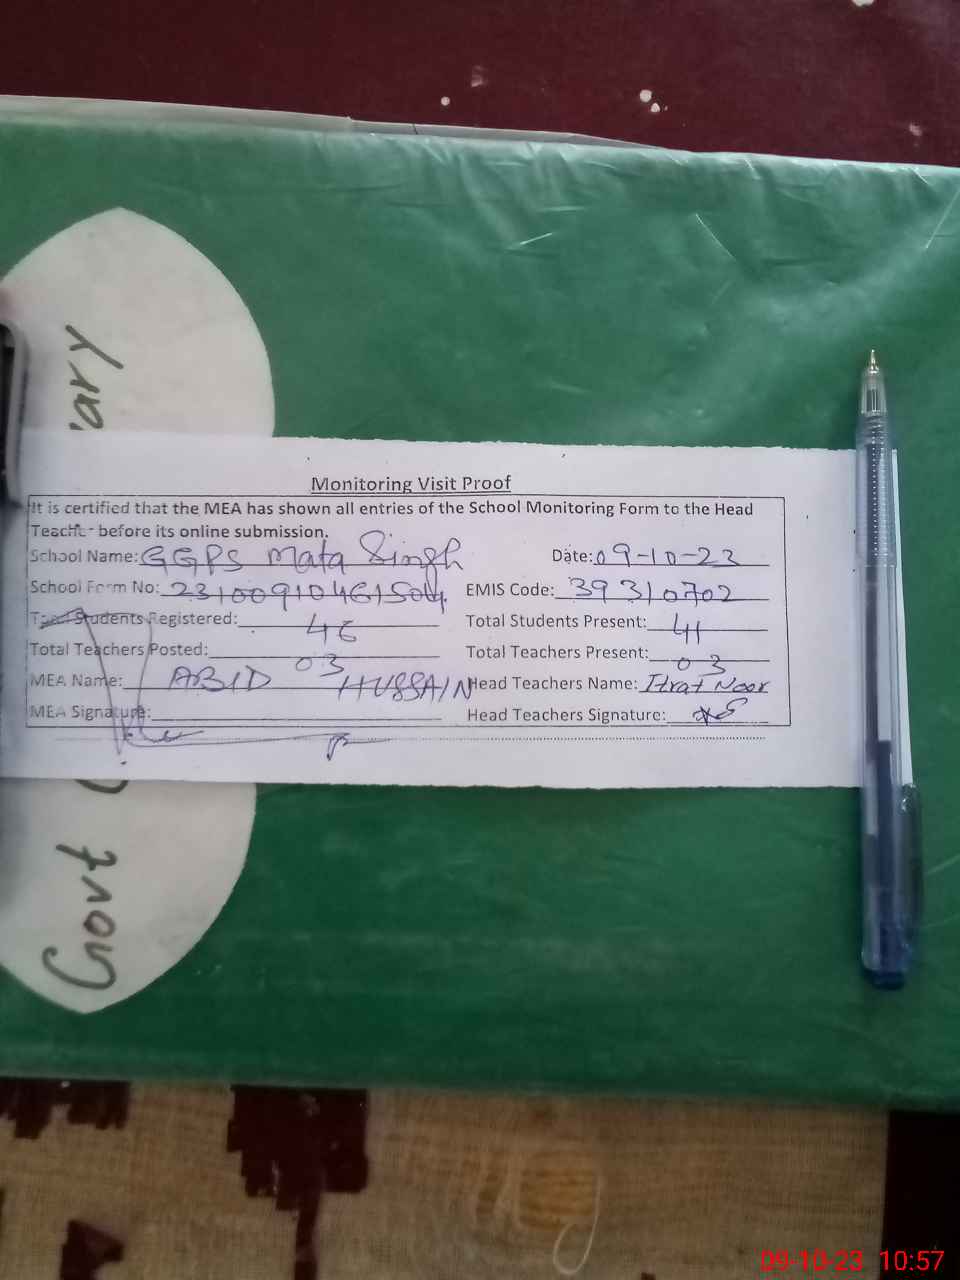 Monitoring Visit Proof
It is certified that the MEA has shown all entries of the School Monitoring Form to the Head
Teacher before its online submission.
School Name: GGPS Mata Singh Date: 09-10-23
School Form No: 231009104615041 EMIS Code: 39310702
Total Students Registered: 46 Total Students Present: 41
Total Teachers Posted: 03 Total Teachers Present: 03
MEA Name: ABID HUSSAIN Head Teachers Name: Itrat Noor
MEA Signature: Head Teachers Signature:
Govt
ary
09-10-23 10:57